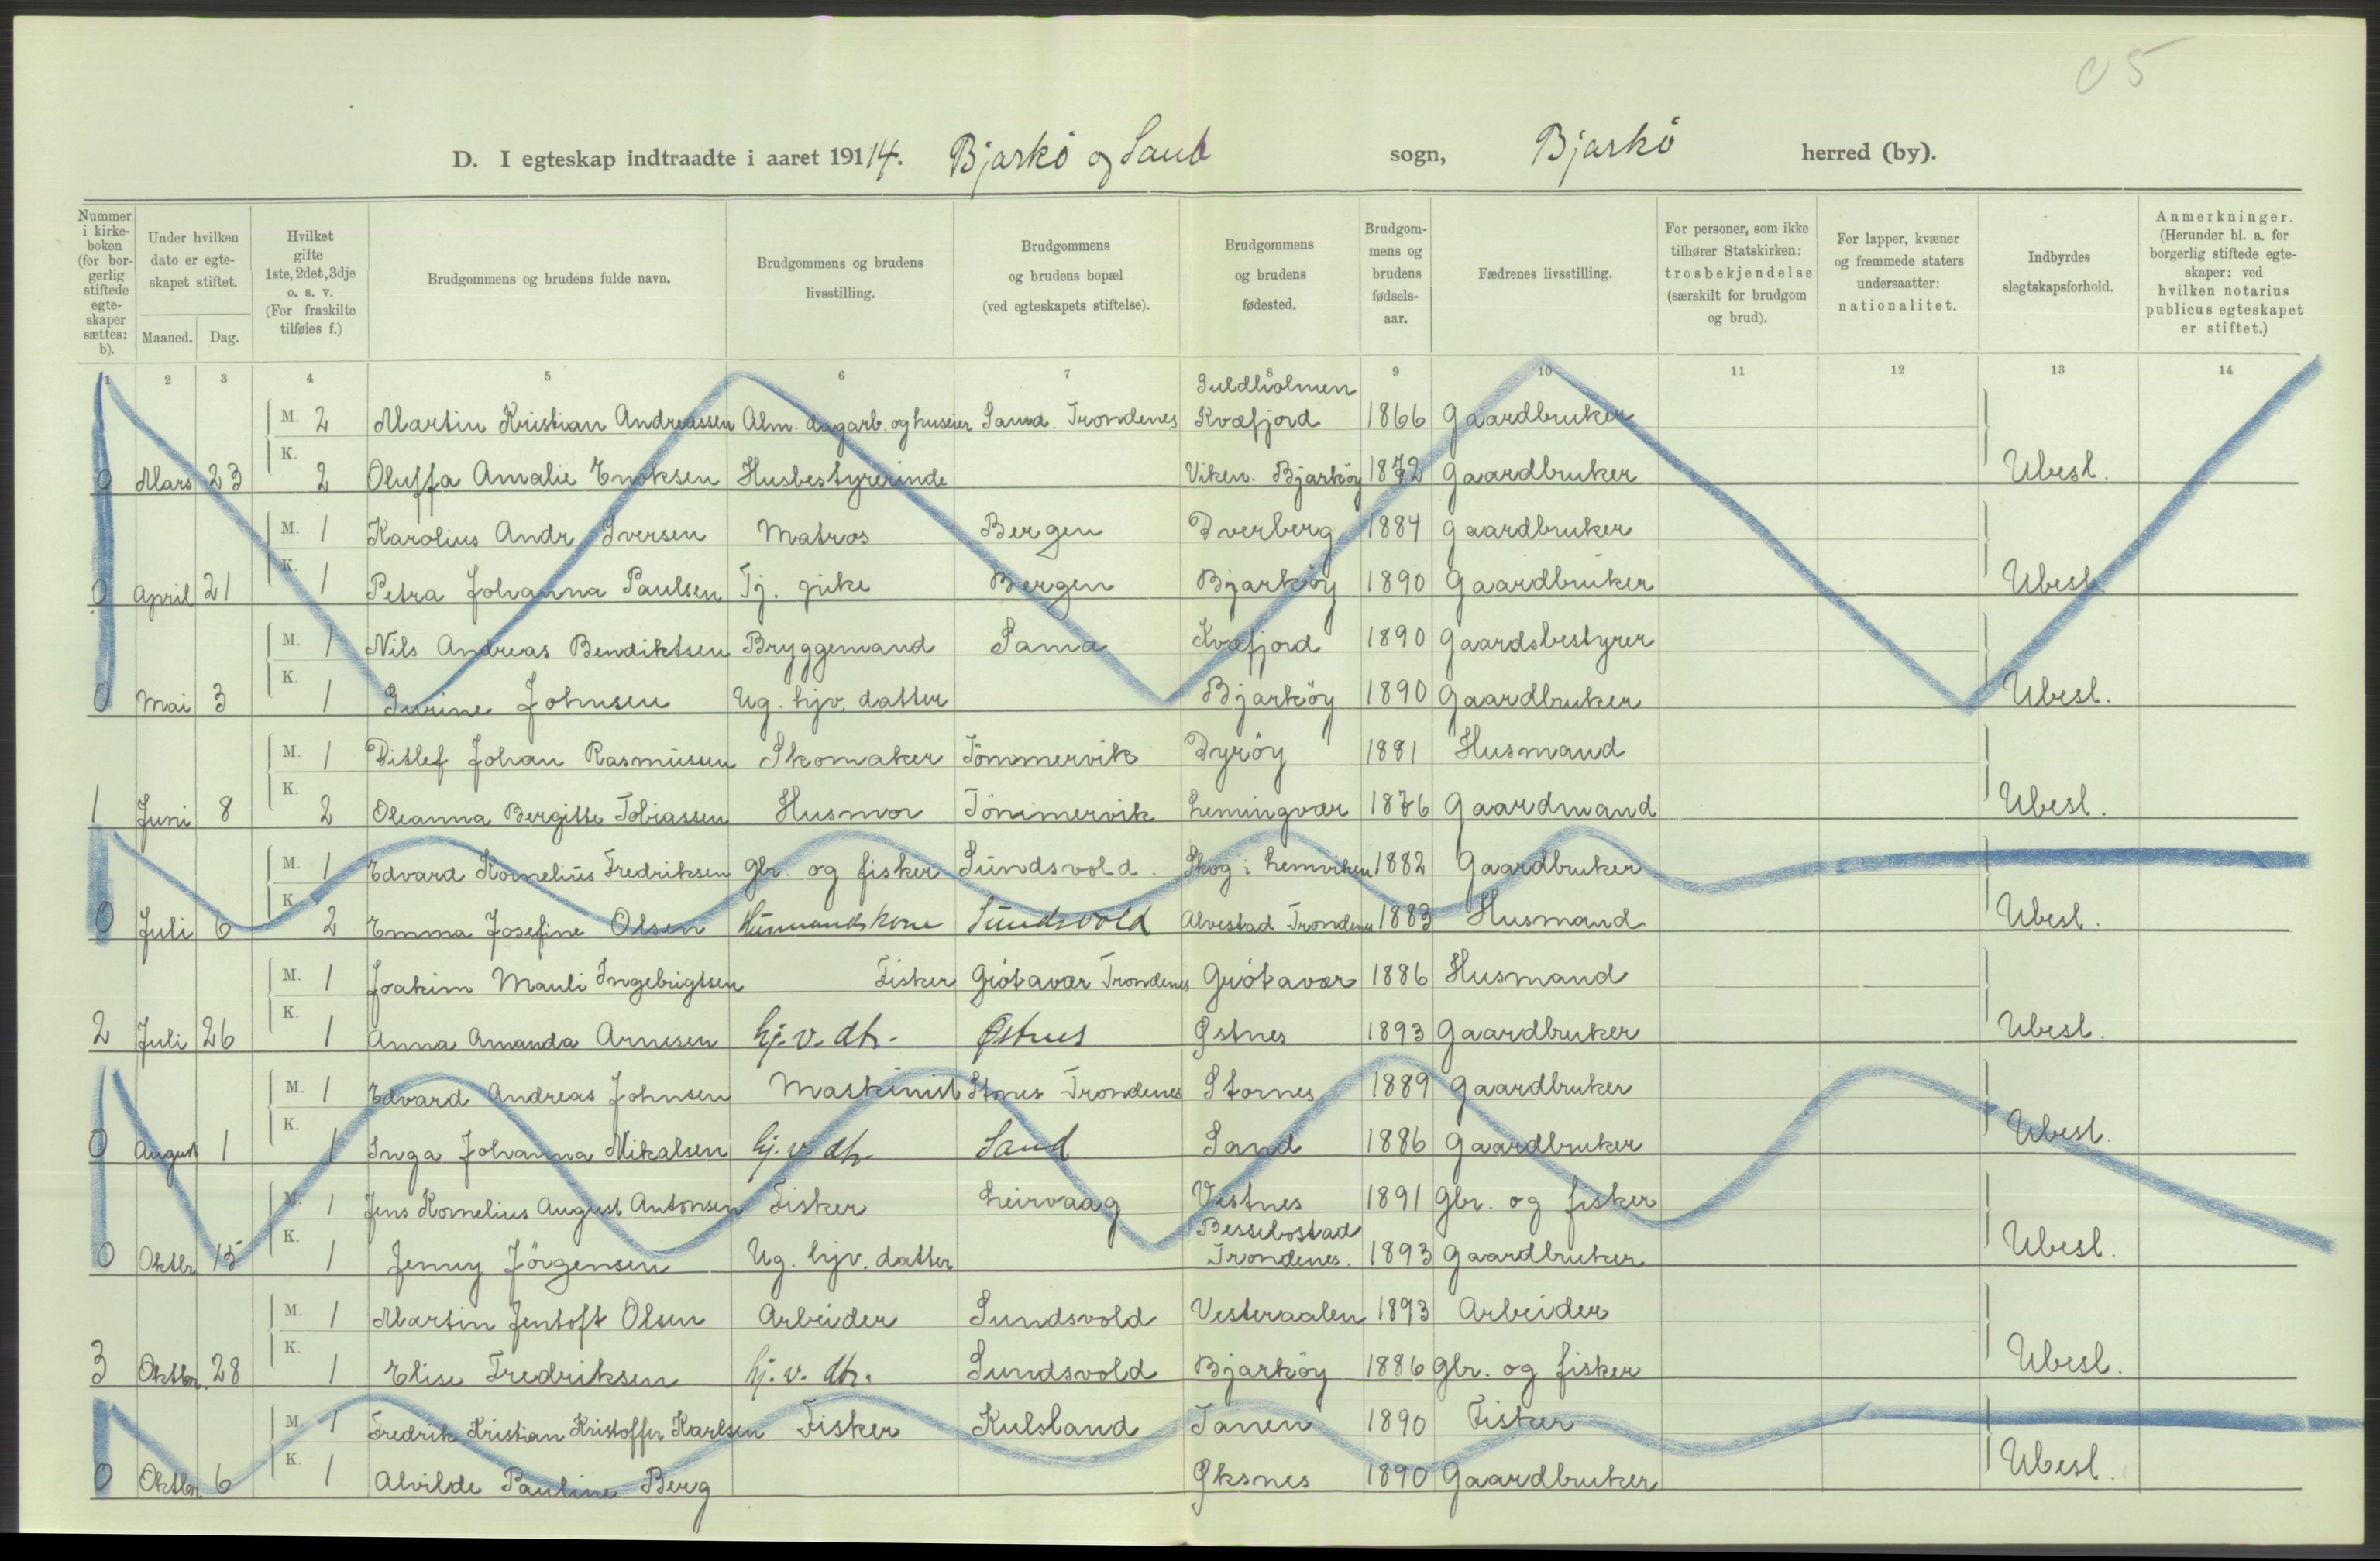 C 5
D. I egteskap indtraadte i aaret 19114. Bjarkö og Sand sogn, Bjarkö herred (by).
Nummer i kirke-boken (for bor-gerlig stiftede egte-skaper sættes: b).
Under hvilken dato er egte-skapet stiftet.
Maaned. Dag.
Hvilket gifte 1ste, 2det, 3dje o. s. v. (For fraskilte tilføies f.)
Brudgommens og brudens fulde navn.
Brudgommens og brudens livsstilling.
Brudgommens og brudens bopæl (ved egteskapets stiftelse).
Brudgommens og brudens fødested.
Brudgom-mens og brudens fødsels-aar.
Fædrenes livsstilling.
For personer, som ikke tilhører Statskirken: trosbekjendelse (særskilt for brudgom og brud).
For lapper, kvæner og fremmede staters undersaatter: nationalitet.
Indbyrdes slegtskapsforhold.
Anmerkninger. (Herunder bl. a. for borgerlig stiftede egte-skaper: ved hvilken notarius publicus egteskapet er stiftet.)
1 2 3 4 5 6 7 8 9 10 11 12 13 14
M. 2 Martin Kristian Andreassen Alm. dagarb. og huseier Sand. Trondenes Kvæfjord 1866 Gaardbruker
0 Mars 23 K. 2 Oluffa Amalie Enoksen Husbestyrerinde Viken. Bjarköy 1872 Gaardbruker Ubesl.
M. 1 Karolius Andr Iversen Matros Bergen Dverberg 1884 Gaardbruker
0 April 21 K. 1 Petra Johanna Paulsen Tj. pike Bergen Bjarköy 1890 Gaardbruker Ubesl.
M. 1 Nils Andreas Bendiktsen Bryggemand Sama Kvæfjord 1890 Gaardsbestyrer
0 Mai 3 K. 1 Gurine Johnsen Ug. hjv. datter Bjarköy 1890 Gaardbruker Ubesl.
M. 1 Ditlef Johan Rasmusen Skomaker Tömmervik Dyröy 1881 Husmand
1 Juni 8 K. 2 Oleanna Bergitte Tobiassen Husmor Tömmervik Lemingvær 1876 Gaardmand Ubesl.
M. 1 Edvard Kornelius Fredriksen Gbr. og fisker Sundsvold. Skog i Lemviken 1882 Gaardbruker
0 Juli 6 K. 2 Emma Josefine Olsen Husmandskone Sundsvold Alvestad Trondenes 1883 Husmand Ubesl.
M. 1 Joakim Mauli Ingebrigtsen Fisker Griótavær Trondenes Griótavær 1886 Husmand
2 Juli 26 K. 1 Anna Amanda Arnesen hj. v. dtr. Østnes Østnes 1893 Gaardbruker Ubesl.
M. 1 Edvard Andreas Johnsen Maskinist Stnes Trondenes Stornes 1889 Gaardbruker
0 August 1 K. 1 Inga Johanna Mikalsen hj. v. dtr. Sand Sand 1886 Gaardbruker Ubesl.
M. 1 Jens Kornelius August Antonsen Fisker Leirvaag Vestnes 1891 Gbr. og fisker
0 Oktbr 15 K. 1 Jenny Jörgensen Ug. hjv. datter Bessebostad Trondenes. 1893 Gaardbruker Ubesl.
M. 1 Martin Jentoft Olsen Arbeider Sundsvold Vesteraalen 1893 Arbeider
3 Oktbr. 28 K. 1 Elise Fredriksen hj. v. dtr. Sundsvold Bjarköy 1886 Gbr. og fisker Ubesl.
M. 1 Fredrik Kristian Kristoffer Karlsen Fisker Kulsland Tanen 1890 Fisker
0 Oktbr 6 K. 1 Alvilde Pauline Berg Øksnes 1890 Gaardbruker Ubesl.